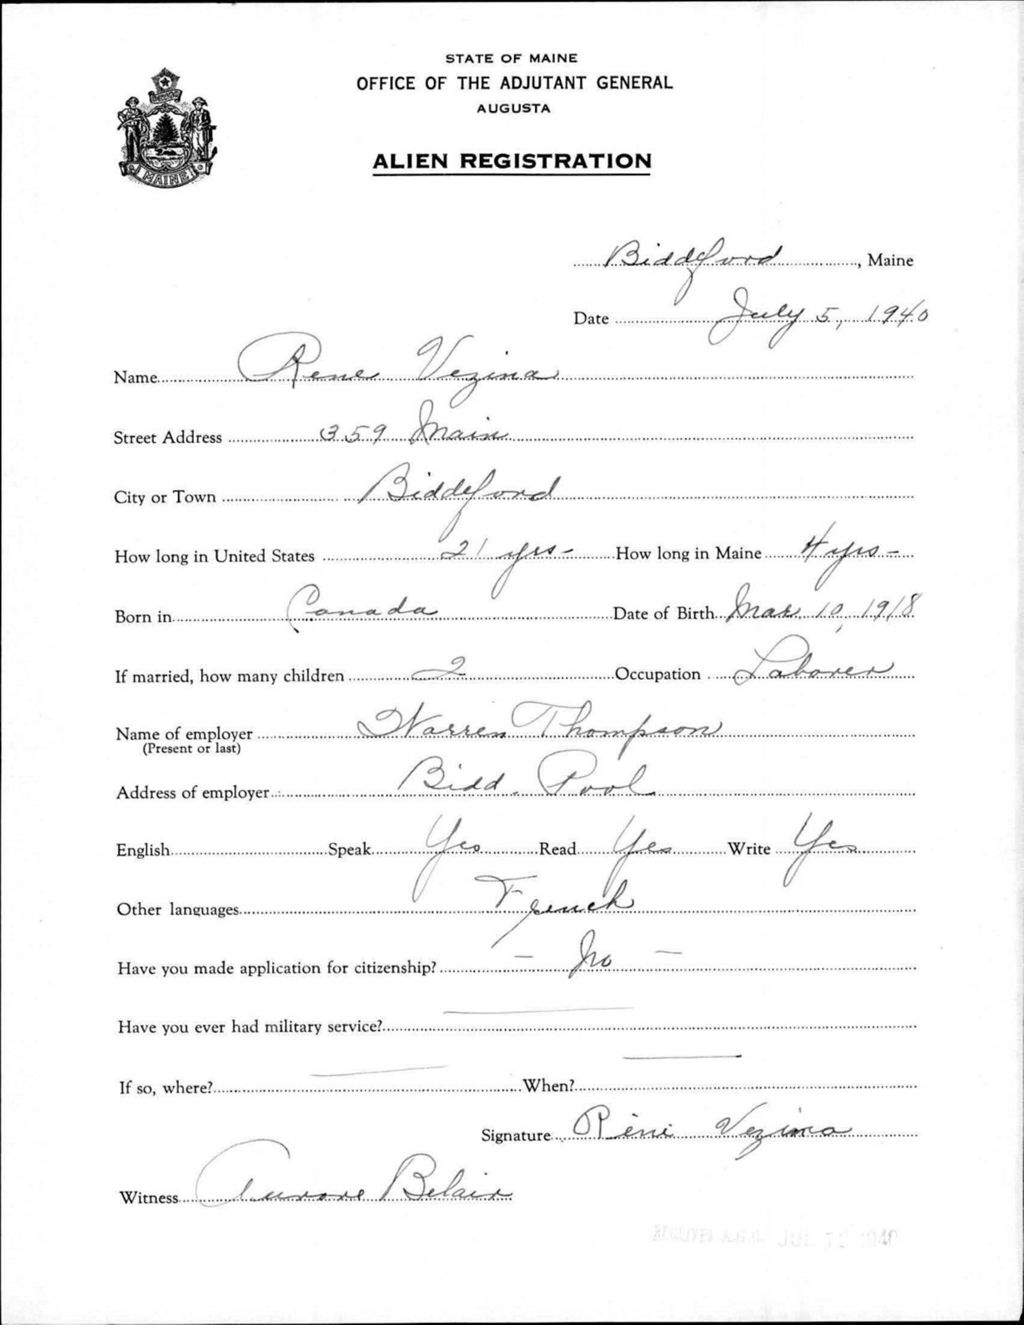 STATE OF MAINE
OFFICE OF THE ADJUTANT GENERAL
AUGUSTA
ALIEN REGISTRATION
MAINE
Biddeford, Maine
Date July 5, 1940
Name Rene Vezina
Street Address 359 Main
City or Town Biddeford
How long in United States 21 yrs - How long in Maine 4 yrs -
Born in Canada Date of Birth Mar. 10, 1918
If married, how many children 2 Occupation Laborer
Name of employer Warren Thompson
(Present or last)
Address of employer Bidd. Pool
English Speak Yes Read Yes Write Yes
Other languages French
Have you made application for citizenship? - No -
Have you ever had military service? —
If so, where? — When? —
Signature Réne Vezina
Witness Aurore Belair
RECEIVED A.G.O. JUL 12 1940